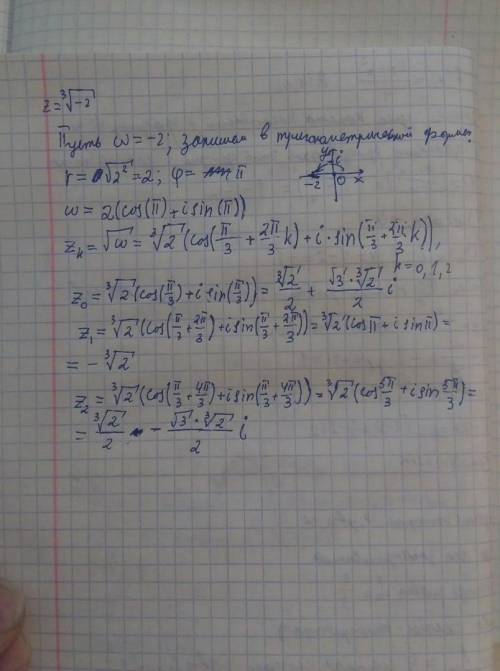 z = ∛(-2)
Пусть ω = -2; запишем в тригонометрической форме:
r = √(2²) = 2; φ = π
y i
-2 0 x
ω = 2(cos(π) + i sin(π))
z_k = √ω = ∛2 (cos(π/3 + 2π/3 k) + i · sin(π/3 + 2π/3 k)),
k = 0, 1, 2
z₀ = ∛2 (cos(π/3) + i sin(π/3)) = ∛2/2 + (√3 · ∛2)/2 i
z₁ = ∛2 (cos(π/3 + 2π/3) + i sin(π/3 + 2π/3)) = ∛2 (cos π + i sin π) =
= -∛2
z₂ = ∛2 (cos(π/3 + 4π/3) + i sin(π/3 + 4π/3)) = ∛2 (cos 5π/3 + i sin 5π/3) =
= ∛2/2 - (√3 · ∛2)/2 i